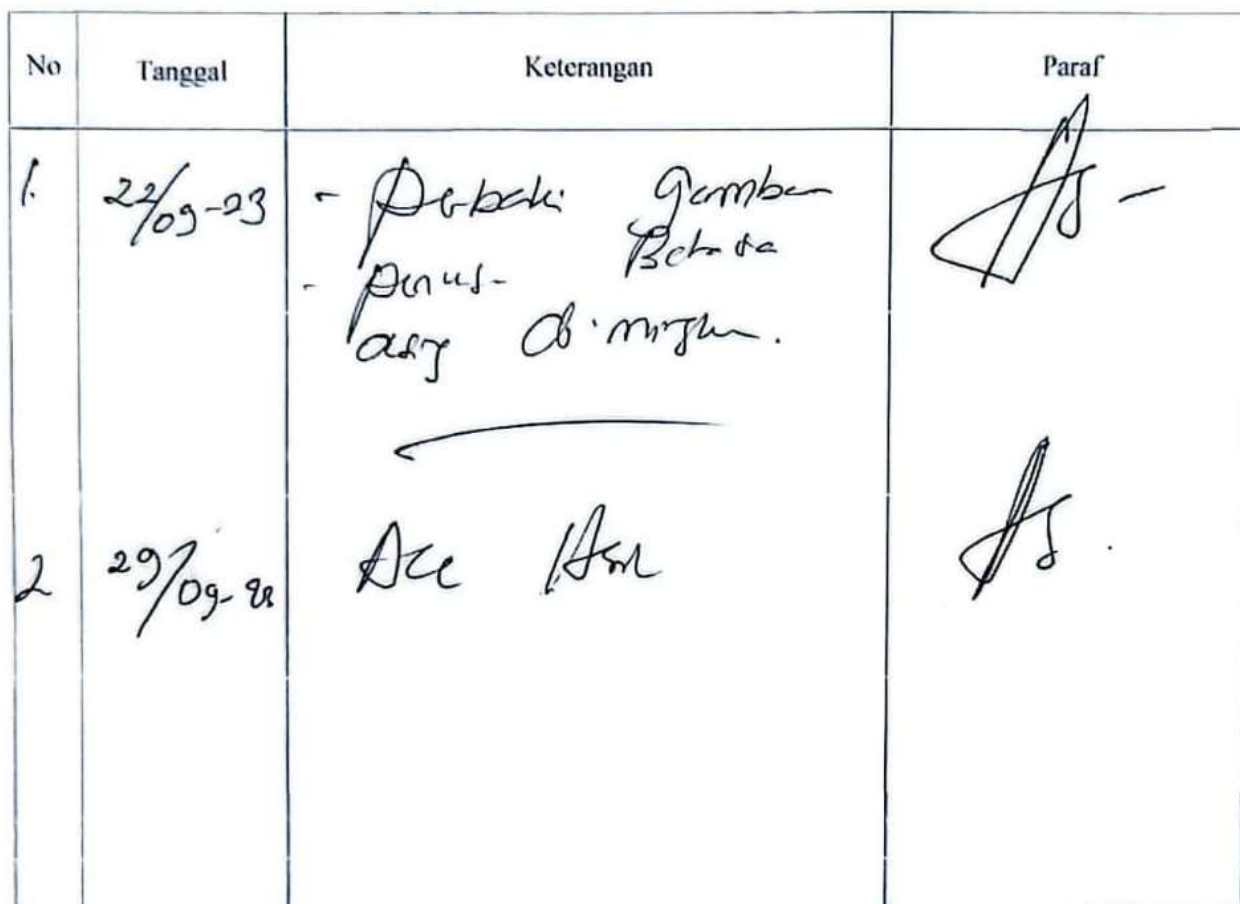 No Tanggal Keterangan Paraf
1. 22/09-23 - Perbaiki gambar
- Penus- Bahasa
asing di miringkan.
2 29/09-23 Acc